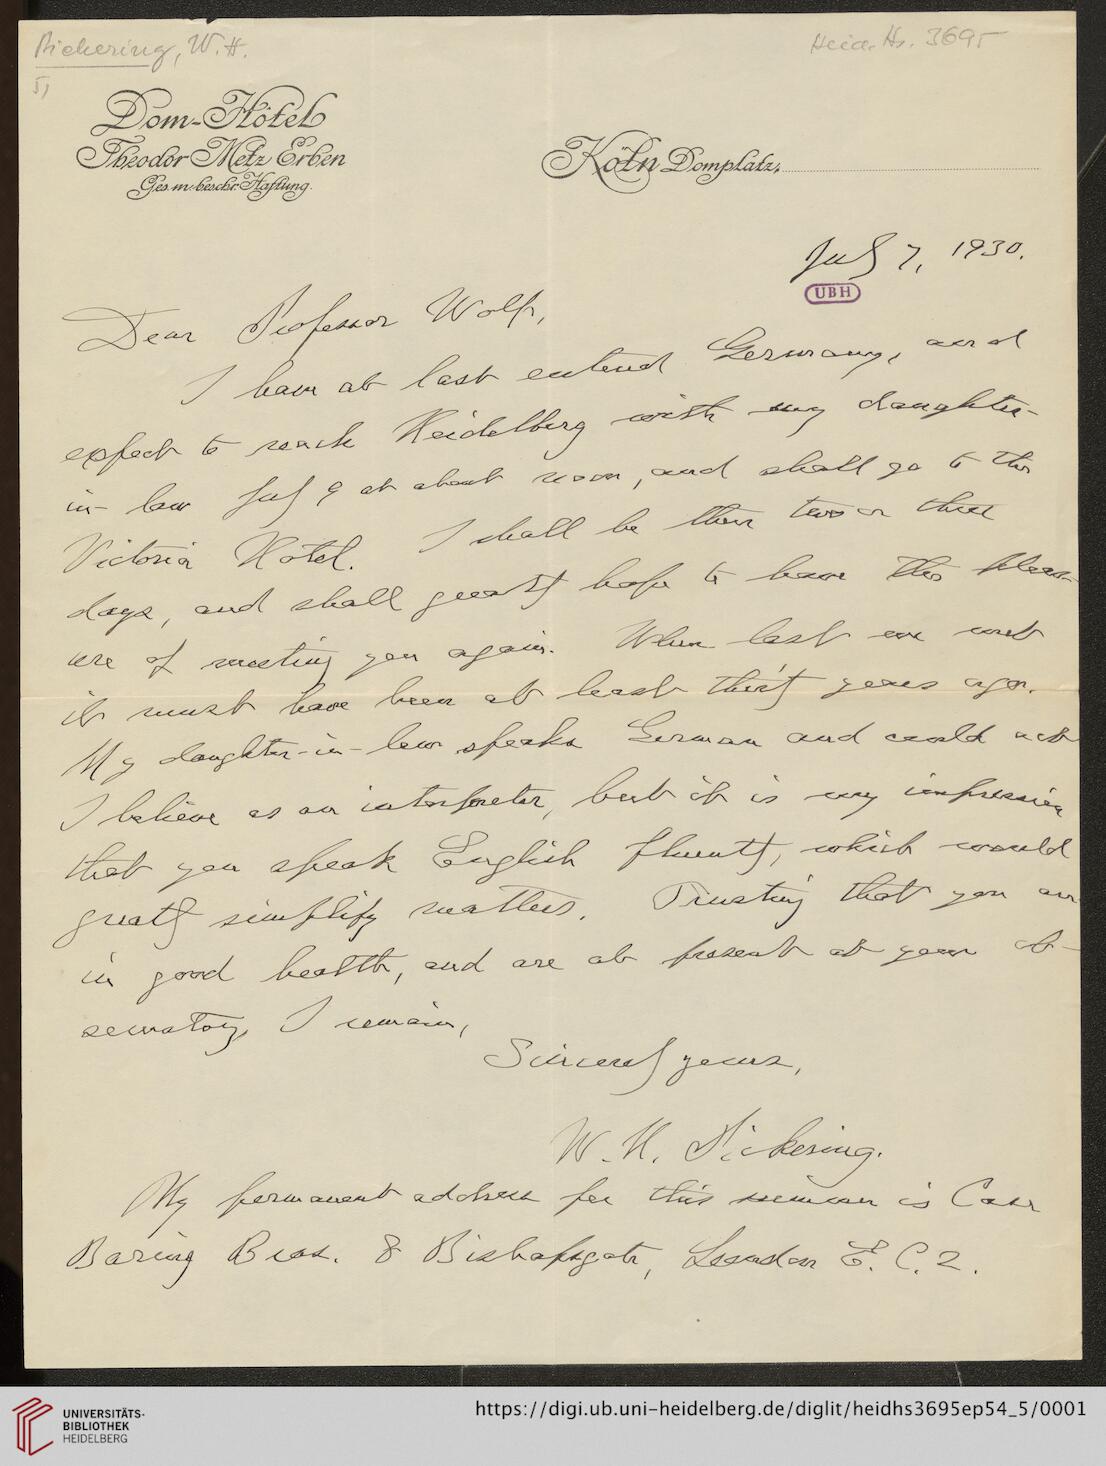 Pickering, W. H.
Heid. Hs. 3695
5)
Dom-Hôtel
Theodor Metz Erben
Ges. m. beschr. Haftung.
Köln Domplatz,
July 7, 1930.
UBH
Dear Professor Wolf,
I have at last entered Germany, and
expect to reach Heidelberg with my daughter-
in-law July 9 at about noon, and shall go to the
Victoria Hotel. I shall be there two or three
days, and shall greatly hope to have the pleas-
ure of meeting you again. When last we met
it must have been at least thirty years ago.
My daughter-in-law speaks German and could act
I believe as an interpreter, but it is my impression
that you speak English fluently, which would
greatly simplify matters. Trusting that you are
in good health, and are at present at your ob-
servatory, I remain,
Sincerely yours,
W. H. Pickering.
My permanent address for this summer is Care
Baring Bros. 8 Bishopsgate, London E. C. 2.
UNIVERSITÄTS-
BIBLIOTHEK
HEIDELBERG
https://digi.ub.uni-heidelberg.de/diglit/heidhs3695ep54_5/0001